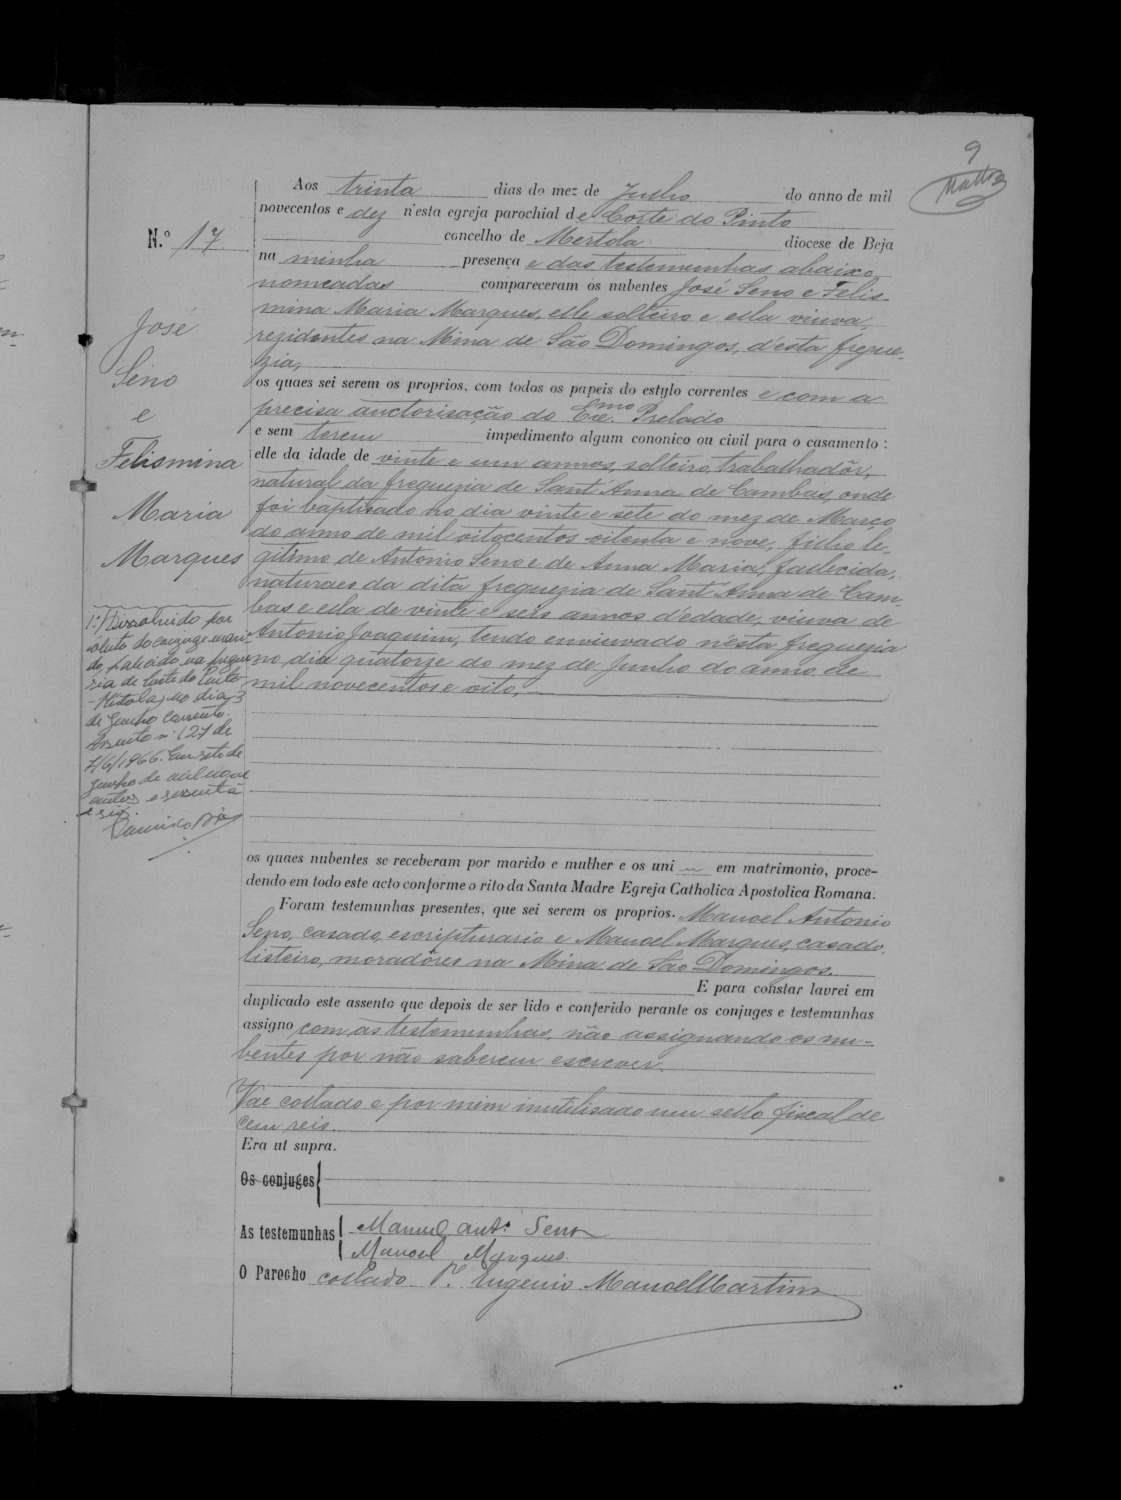 9
Mattos
Aos trinta dias do mez de Julho do anno de mil
novecentos e dez n'esta egreja parochial de Corte do Pinto
N.º 17
concelho de Mertola diocese de Beja
na minha presença e das testemunhas abaixo
nomeadas compareceram os nubentes José Seno e Felis-
mina Maria Marques, elle solteiro e ella viuva,
rezidentes na Mina de São Domingos, d'esta fregue-
zia,
os quaes sei serem os proprios, com todos os papeis do estylo correntes e com a
precisa auctorisação do Exc.mo Prelado
e sem terem impedimento algum cononico ou civil para o casamento:
elle da idade de vinte e um annos, solteiro, trabalhadôr,
natural da freguezia de Sant'Anna de Cambas, onde
foi baptisado no dia vinte e sete do mez de Março
do anno de mil oitocentos oitenta e nove, filho le-
gitimo de Antonio Seno e de Anna Maria, fallecida,
naturaes da dita freguezia de Sant'Anna de Cam-
bas e ella de vinte e seis annos d'edade, viuva de
Antonio Joaquim, tendo enviuvado n'esta freguezia
no dia quatorze do mez de Junho do anno de
mil novecentos e oito,
José
Seno
e
Felismina
Maria
Marques
1.º) Dissolvido por
obito do conjuge mari-
do, falecido na fregue-
sia de Corte do Pinto
-Mértola, no dia 3
de Junho corrente.
Assento n.º 127 de
7/6/1966. Em sete de
Junho de mil nove
centos e sessenta
e seis.
os quaes nubentes se receberam por marido e mulher e os uni em matrimonio, proce-
dendo em todo este acto conforme o rito da Santa Madre Egreja Catholica Apostolica Romana.
Foram testemunhas presentes, que sei serem os proprios. Manoel Antonio
Seno, casado, escripturario e Manoel Marques, casado,
listeiro, moradôres na Mina de São Domingos.
E para constar lavrei em
duplicado este assento que depois de ser lido e conferido perante os conjuges e testemunhas
assigno com as testemunhas, não assignando os nu-
bentes por não saberem escrever.
Vae collado e por mim inutilisado um sello fiscal de
cem reis.
Era ut supra.
Os conjuges
As testemunhas Manuel Antº Seno
Manoel Marques
O Parocho collado P.e Eugenio Manoel Martins